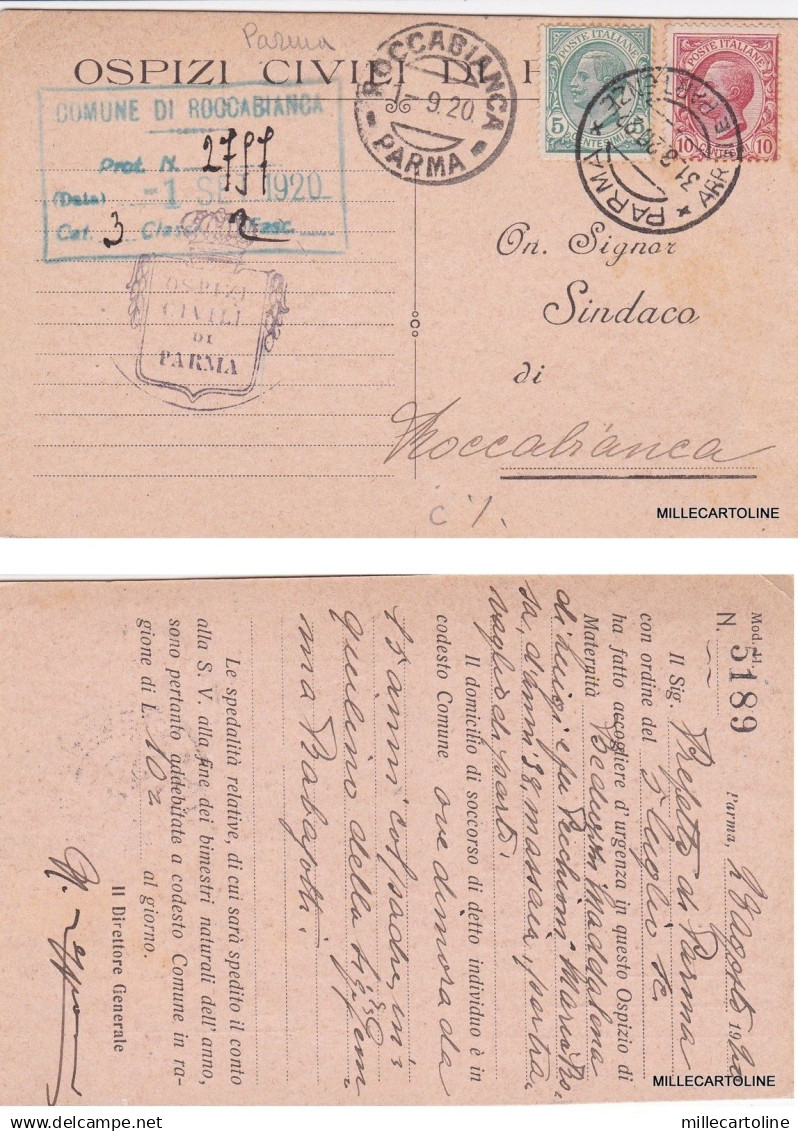 Parma
OSPIZI CIVILI DI P
COMUNE DI ROCCABIANCA
Prot. N. 2797
(Data) -1 SET 1920
Cat. 3 Classe 2 Fasc.
ROCCABIANCA
1-9.20
PARMA
POSTE ITALIANE
5
CENTESIMI
POSTE ITALIANE
10 10
PARMA
ARRIVI E PARTENZE
OSPIZI
CIVILI
DI
PARMA
On. Signor
Sindaco
di
Roccabianca
MILLECARTOLINE
Mod. 41.
N. 5189
Parma, Agosto 1920
Il Sig. Prefetto di Parma
con ordine del Luglio
ha fatto accogliere d'urgenza in questo Ospizio di
Maternità Maddalena
di Luigi e fu Maria
sa, d'anni 38, massaia,
Il domicilio di soccorso di detto individuo è in
codesto Comune ove dimora da
anni col padre, in
quilino della
ma
Le spedalità relative, di cui sarà spedito il conto
alla S. V. alla fine dei bimestri naturali dell'anno,
sono pertanto addebitate a codesto Comune in ra-
gione di L. 10 al giorno.
Il Direttore Generale
MILLECARTOLINE
delcampe.net
millecartoline